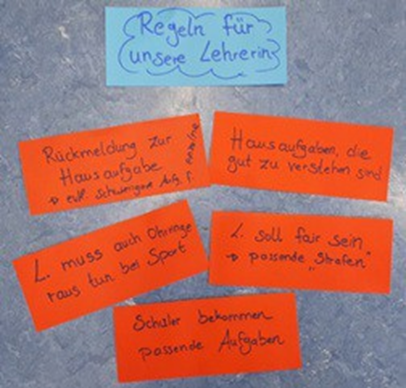 Regeln für
unsere Lehrerin
Rückmeldung zur
Hausaufgabe
→ evtl. schwierigere Aufg. f.
einzelne
Hausaufgaben, die
gut zu verstehen sind
L. muss auch Ohrringe
raus tun bei Sport
L. soll fair sein
→ passende "Strafen"
Schüler bekommen
passende Aufgaben